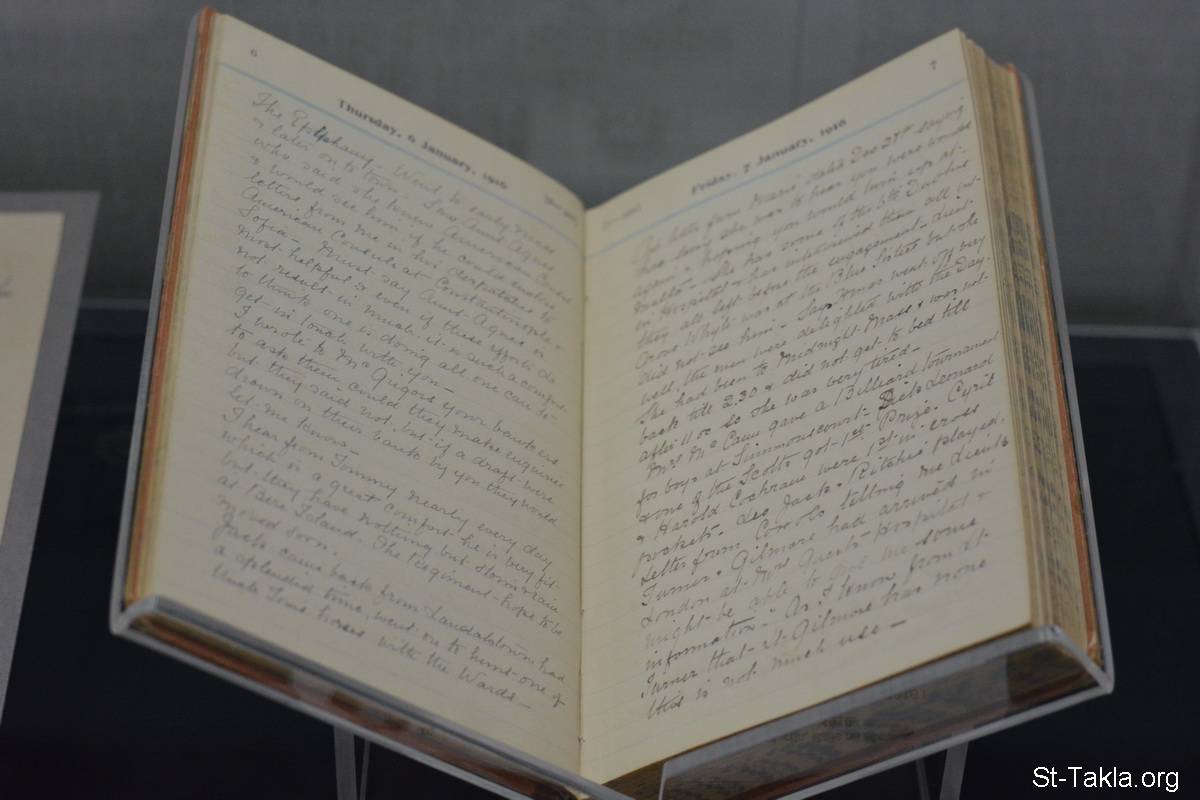 6
Thursday, 6 January, 1916
The Epiphany - Went to early Mass
& later on to town. Saw Aunt Agnes
who said she knew American Consul
& would see him if he could enclose
letters from me in his despatches to
American Consuls at Constantinople &
Sofia. I must say Aunt Agnes is
most helpful & even if these efforts do
not result in much it is such a comfort
to think one is doing all one can to
get in touch with you -
I wrote to Mc Grigors your bankers
to ask them could they make enquiries
but they said not, but if a draft were
drawn on their bank by you they would
let me know
I hear from Tommy nearly every day
which is a great comfort he is very fit -
but they have nothing but storm & rain
at Bere Island. The Regiment hope to be
moved soon.
Jack came back from Landalstown had
a splendid time, went on to hunt one of
Uncle Tom's horses, with the Wards -
7
Friday, 7 January, 1916
Got letter from dated Dec 28th saying
how she was to hear you were wounded
again & hoping you would turn up at
Malta - She has some of the 6th Dublins
in Hospital & has interviewed them all but
they all left before the engagement - Lieut
Grove Whyte was at the Blue Sisters but she
did not see him - Says Xmas went off very
well, the men were delighted with the Day.
She had been to Midnight Mass & was not
back till 2.30 & did not get to bed till
after 11 so she was very tired -
Mrs McCann gave a Billiard tournament
for boys at Simmonscourt - Dick Leonard
& one of the Scotts got 1st Prize. Cyril
& Harold Cochrane were 1st in cross
pockets. Leo Jack & Ritchie played.
Letter from telling me Lieuts
Turner & Gilmore had arrived in
London at Mrs Guests Hospital &
might be able to give me some
information - As I know from Lt
Turner that Lt Gilmore has none
this is not much use -
St-Takla.org